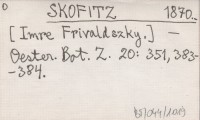 SKOFITZ 1870.
[Imre Frivaldszky.] —
Oester. Bot. Z. 20: 351, 383-
-384.